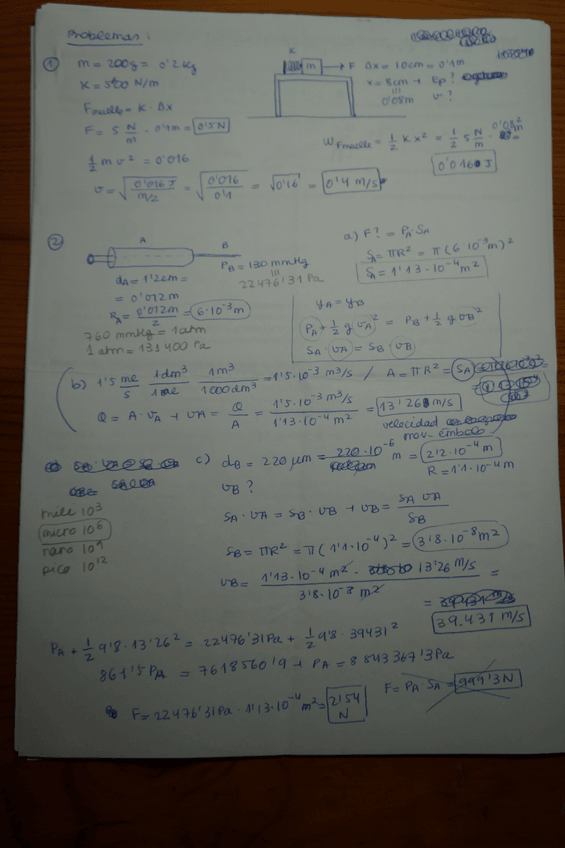 Problemas:
① m = 200g = 0'2 Kg
K = 500 N/m
F muelle = K · Δx
F = 5 N/m · 0'1m = 0'5N
1/2 m v² = 0'016
v = √(0'016 J / m/2) = √(0'016 / 0'1) = √0'16 = 0'4 m/s
K
m → F Δx = 10cm = 0'1m
x = 8cm → Ep?
0'08m v?
W Fmuelle = 1/2 K x² = 1/2 5 N/m · 0'08² m =
0'016 J
② A B
dA = 1'2cm =
= 0'012m
RA = 0'012m / 2 = 6·10⁻³m
PB = 130 mmHg
22476'31 Pa
760 mmHg = 1atm
1 atm = 131400 Pa
a) F? = PA·SA
SA = πR² = π(6·10⁻³m)²
SA = 1'13·10⁻⁴m²
yA = yB
PA + 1/2 g vA² = PB + 1/2 g vB²
SA · vA = SB · vB
b) 1'5 ml/s · 1dm³/1ml · 1m³/1000dm³ = 1'5·10⁻³ m³/s / A = πR² = SA
Q = A·vA → vA = Q/A = 1'5·10⁻³ m³/s / 1'13·10⁻⁴ m² = 13'26 m/s
velocidad
mov. émbolo
c) dB = 220 μm = 220·10⁻⁶ m = 2'2·10⁻⁴ m
R = 1'1·10⁻⁴m
vB?
mili 10³
micro 10⁶
nano 10⁹
pico 10¹²
SA · vA = SB · vB → vB = SA vA / SB
SB = πR² = π(1'1·10⁻⁴)² = 3'8·10⁻⁸m²
vB = 1'13·10⁻⁴ m² · 13'26 m/s / 3'8·10⁻⁸ m² =
= 39.431 m/s
PA + 1/2 9'8·13'26² = 22476'31Pa + 1/2 9'8·39431²
861'5 PA = 7618560'9 → PA = 8843367'3Pa
F = PA SA = 999'3N
F = 22476'31Pa · 1'13·10⁻⁴ m² = 2'54 N